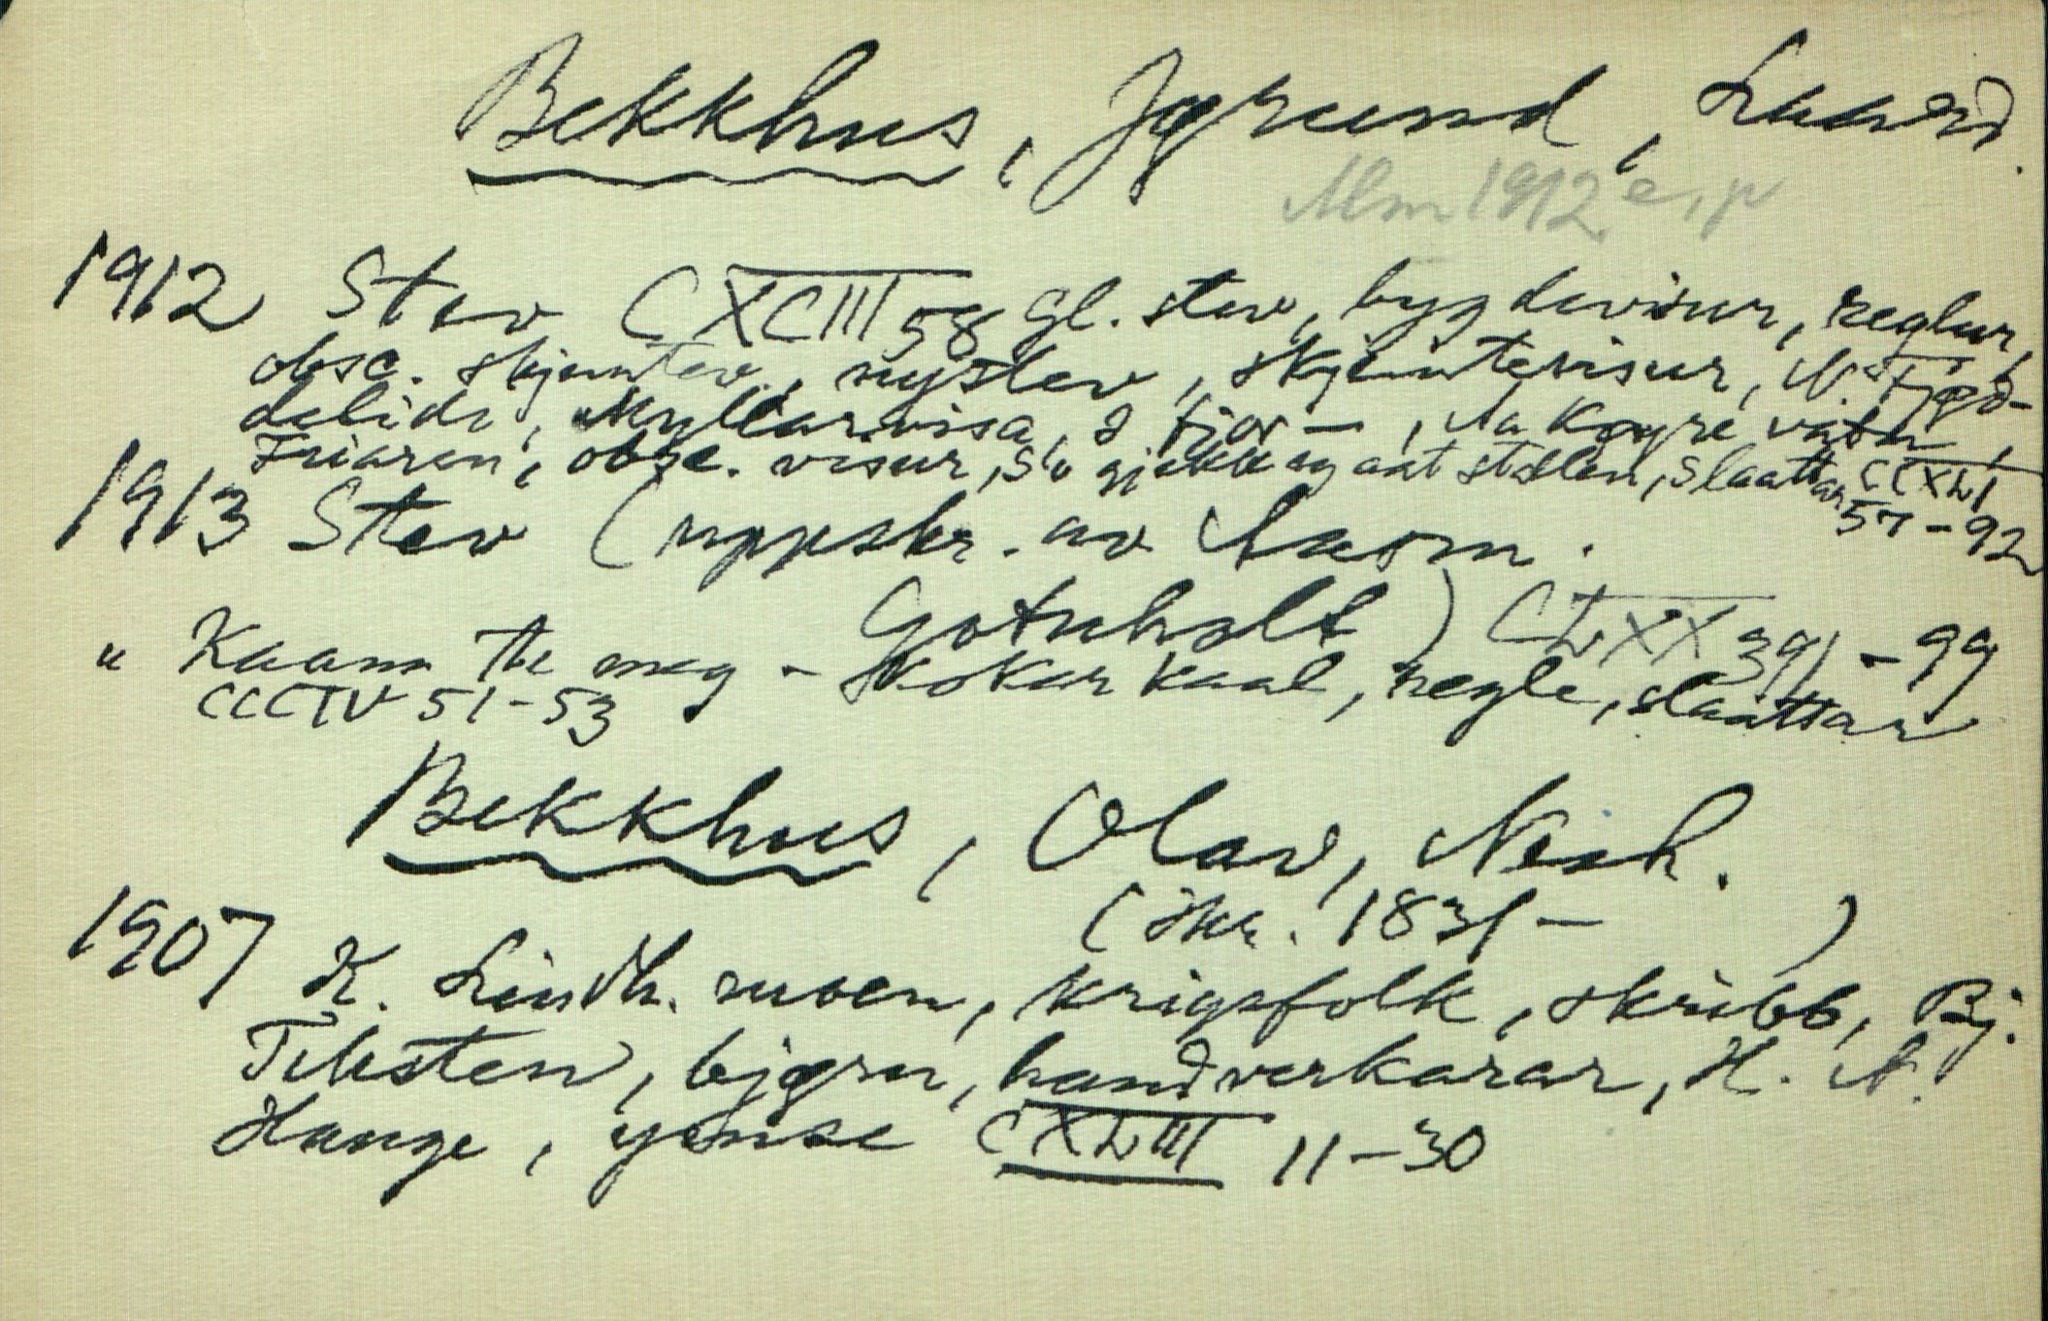 Bekkhus, Jørund, Laurd.
Mm 1912 e, p
1912 Stev CXCIII 58 gl. stev, bygdevisur, reglur,
obsc. skjemtev., nystev, skjemtevisur, N. Fjød-
delidi, "Myllarvisa, I fjor –, Aa Køyre vatn,
Friaren, obsc. visur, So gjekk eg aat stolen, slaattar CCXLI
57-92
1913 Stev (uppskr. av Aasm.
Gotuholt) CLXX 391-99
" Kaam te meg - kokar kaal, regle, slaattar
CCCIV 51-53
Bekkhus, Olav, Nesh.
(Skr. 1831- )
1907 K. Lindh. moen, krigsfolk, skribb, Bj.
Tilisten, bjørn, handverkarar, H. N.
Hauge, ymse CXLIII 11-30